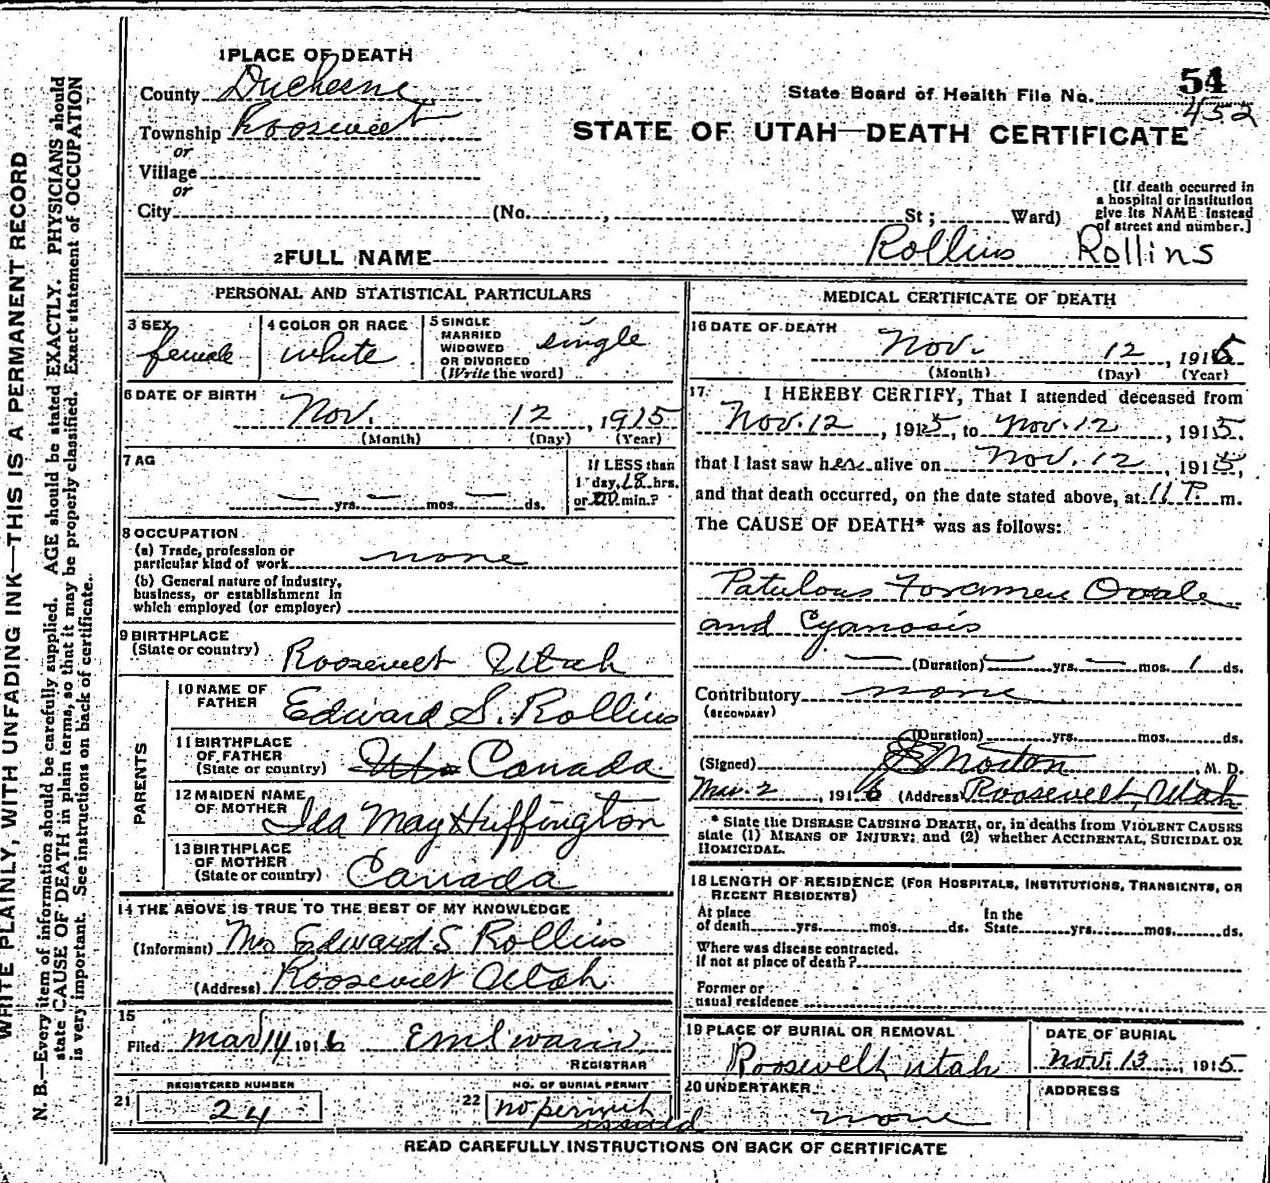 WRITE PLAINLY, WITH UNFADING INK—THIS IS A PERMANENT RECORD
N. B.—Every item of information should be carefully supplied. AGE should be stated EXACTLY. PHYSICIANS should
state CAUSE OF DEATH in plain terms, so that it may be properly classified. Exact statement of OCCUPATION
is very important. See instructions on back of certificate.
1 PLACE OF DEATH
County Duchesne
Township Roosevelt
or
Village
or
City (No. , St ; Ward)
54
State Board of Health File No. 452
STATE OF UTAH—DEATH CERTIFICATE
[If death occurred in
a hospital or institution
give its NAME instead
of street and number.]
2 FULL NAME Rollins Rollins
PERSONAL AND STATISTICAL PARTICULARS
3 SEX female
4 COLOR OR RACE white
5 SINGLE
MARRIED
WIDOWED
OR DIVORCED
(Write the word) single
6 DATE OF BIRTH
Nov. 12, 1915
(Month) (Day) (Year)
7 AG
— yrs. — mos. — ds.
If LESS than
1 day, 18 hrs.
or min.?
8 OCCUPATION
(a) Trade, profession or
particular kind of work none
(b) General nature of industry,
business, or establishment in
which employed (or employer)
9 BIRTHPLACE
(State or country) Roosevelt Utah
PARENTS
10 NAME OF
FATHER Edward S. Rollins
11 BIRTHPLACE
OF FATHER
(State or country) Canada
12 MAIDEN NAME
OF MOTHER Ida May Huffington
13 BIRTHPLACE
OF MOTHER
(State or country) Canada
14 THE ABOVE IS TRUE TO THE BEST OF MY KNOWLEDGE
(Informant) Mrs Edward S Rollins
(Address) Roosevelt Utah
15
Filed Mar 14 1916
REGISTRAR
REGISTERED NUMBER
21 24
NO. OF BURIAL PERMIT
22 no permit
issued
MEDICAL CERTIFICATE OF DEATH
16 DATE OF DEATH
Nov. 12, 1915
(Month) (Day) (Year)
17 I HEREBY CERTIFY, That I attended deceased from
Nov. 12, 1915, to Nov. 12, 1915.
that I last saw her alive on Nov. 12, 1915,
and that death occurred, on the date stated above, at 11 P. m.
The CAUSE OF DEATH* was as follows:
Patulous Foramen Ovale
and Cyanosis
— (Duration) — yrs. — mos. 1 ds.
Contributory none
(SECONDARY)
(Duration) yrs. mos. ds.
(Signed) Morton M. D.
Mar. 2, 1916 (Address) Roosevelt, Utah
* State the DISEASE CAUSING DEATH, or, in deaths from VIOLENT CAUSES
state (1) MEANS OF INJURY; and (2) whether ACCIDENTAL, SUICIDAL OR
HOMICIDAL.
18 LENGTH OF RESIDENCE (FOR HOSPITALS, INSTITUTIONS, TRANSIENTS, OR
RECENT RESIDENTS)
At place
of death yrs. mos. ds.
In the
State yrs. mos. ds.
Where was disease contracted.
if not at place of death?
Former or
usual residence
19 PLACE OF BURIAL OR REMOVAL
Roosevelt, Utah
DATE OF BURIAL
Nov. 13, 1915
20 UNDERTAKER
none
ADDRESS
READ CAREFULLY INSTRUCTIONS ON BACK OF CERTIFICATE